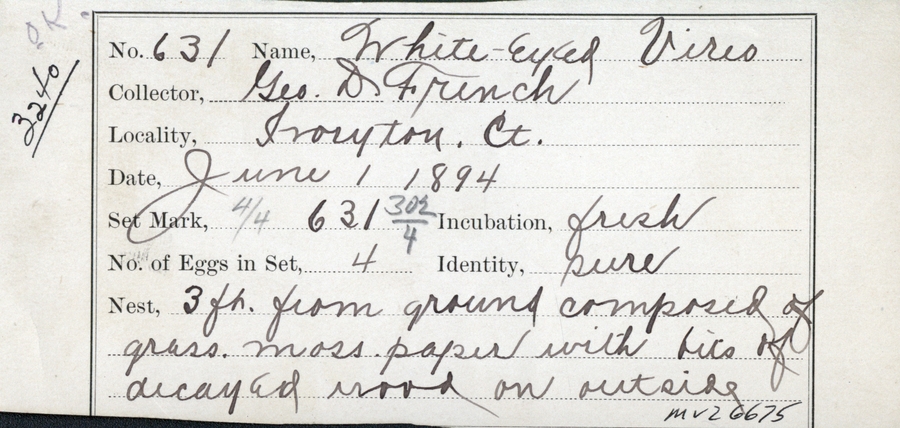 O.K.
3240
No. 631 Name, White-Eyed Vireo
Collector, Geo. D. French
Locality, Ivoryton, Ct.
Date, June 1 1894
Set Mark, 4/4 631 302/4 Incubation, fresh
No. of Eggs in Set, 4 Identity, sure
Nest, 3 ft. from ground composed of
grass. moss. paper with bits of
decayed wood on outside
mvz 6675